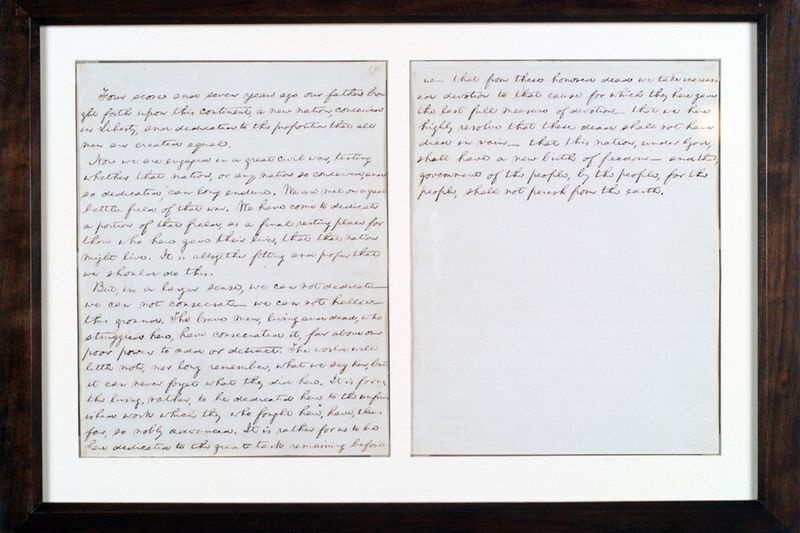 Four score and seven years ago our fathers brou
ght forth upon this continent, a new nation, conceived
in Liberty, and dedicated to the proposition that all
men are created equal.
Now we are engaged in a great civil war, testing
whether that nation, or any nation so conceived, and
so dedicated, can long endure. We are met on a great
battle field of that war. We have come to dedicate
a portion of that field, as a final resting place for
those who here gave their lives, that that nation
might live. It is altogether fitting and proper that
we should do this.
But, in a larger sense, we can not dedicate—
we can not consecrate— we can not hallow—
this ground. The brave men, living and dead, who
struggled here, have consecrated it, far above our
poor power to add or detract. The world will
little note, nor long remember, what we say here, but
it can never forget what they did here. It is for us,
the living, rather, to be dedicated here to the unfin
ished work which they who fought here, have, thus
far, so nobly advanced. It is rather for us to be
here dedicated to the great task remaining before
us— that from these honored dead we take increas
ed devotion to that cause for which they here gave
the last full measure of devotion— that we here
highly resolve that these dead shall not have
died in vain— that this nation, under God,
shall have a new birth of freedom— and that,
government of the people, by the people, for the
people, shall not perish from the earth.